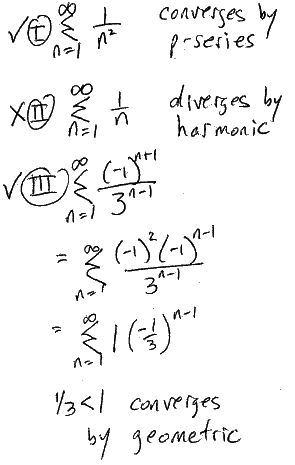 ✓ Ⓘ ∞∑n=1 1/n² converges by p-series
✗ Ⓘ︎Ⓘ ∞∑n=1 1/n diverges by harmonic
✓ III ∞∑n=1 (-1)ⁿ⁺¹/3ⁿ⁻¹
= ∞∑n=1 (-1)²(-1)ⁿ⁻¹/3ⁿ⁻¹
= ∞∑n=1 1(-1/3)ⁿ⁻¹
1/3<1 converges
by geometric